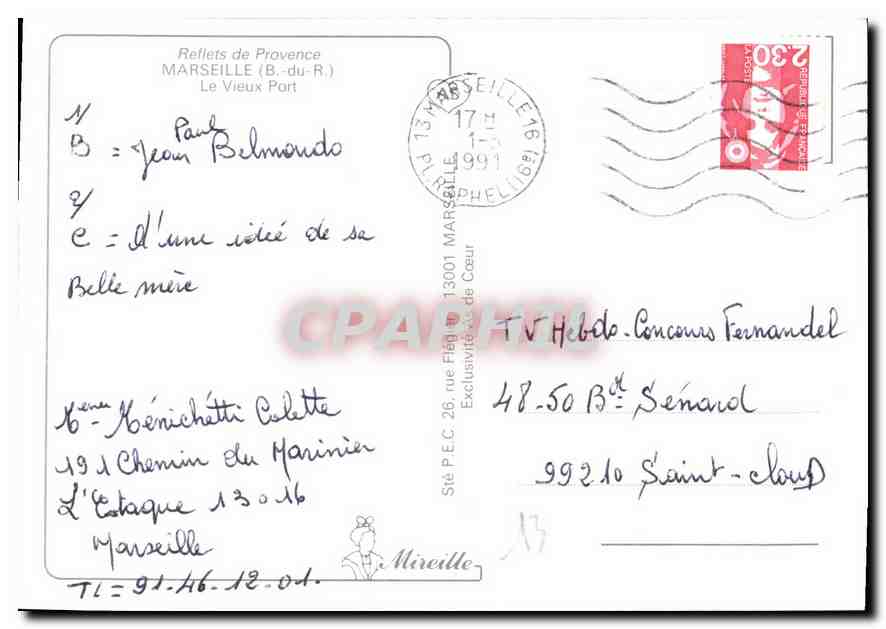 Reflets de Provence
MARSEILLE (B.-du-R.)
Le Vieux Port
1/
B = Jean Paul Belmondo
2/
C = D'une idée de sa
Belle mère
Ménichétti Colette
191 Chemin du Marinier
L'Estaque 13016
Marseille
TL = 91-46-12-01.
Mireille
Sté P.E.C 26, rue Flégier 13001 MARSEILLE
Exclusivité As de Cœur
13 MARSEILLE 16
17 H
1991
2,30
LA POSTE
REPUBLIQUE FRANÇAISE
TV Hebdo-Concours Fernandel
48-50 Bd Sénard
99210 Saint-Cloud
13
CPAPHIL